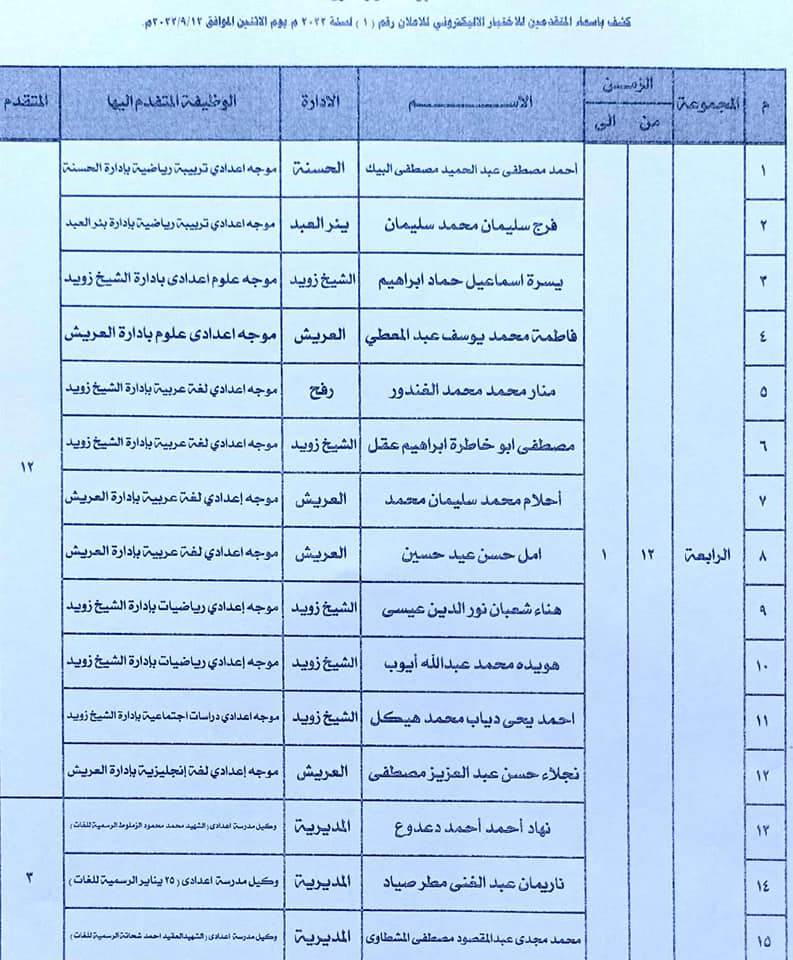 كشف باسماء المتقدمين للاختبار الاليكتروني للاعلان رقم (١) لسنة ٢٠٢٢ م يوم الاثنين الموافق ٢٠٢٢/٩/١٢م.
م المجموعة الزمــن من الى الاســـــم الادارة الوظيفة المتقدم اليها المتقدم
١ أحمد مصطفى عبد الحميد مصطفى البيك الحسنة موجه اعدادي تربيبة رياضية بإدارة الحسنة
٢ فرج سليمان محمد سليمان بئر العبد موجه اعدادي تربيبة رياضية بإدارة بئر العبد
٣ يسرة اسماعيل حماد ابراهيم الشيخ زويد موجه علوم اعدادى بإدارة الشيخ زويد
٤ فاطمة محمد يوسف عبد المعطي العريش موجه اعدادى علوم بإدارة العريش
٥ منار محمد محمد الغندور رفح موجه اعدادي لغة عربية بإدارة الشيخ زويد
٦ مصطفى ابو خاطرة ابراهيم عقل الشيخ زويد موجه اعدادي لغة عربية بإدارة الشيخ زويد
٧ أحلام محمد سليمان محمد العريش موجه إعدادي لغة عربية بإدارة العريش
٨ الرابعة ١٢ ١ امل حسن عيد حسين العريش موجه اعدادي لغة عربية بإدارة العريش ١٢
٩ هناء شعبان نور الدين عيسى الشيخ زويد موجه إعدادي رياضيات بإدارة الشيخ زويد
١٠ هويده محمد عبدالله أيوب الشيخ زويد موجه إعدادي رياضيات بإدارة الشيخ زويد
١١ احمد يحى دياب محمد هيكل الشيخ زويد موجه اعدادي دراسات اجتماعية بإدارة الشيخ زويد
١٢ نجلاء حسن عبد العزيز مصطفى العريش موجه إعدادي لغة إنجليزية بإدارة العريش
١٣ نهاد أحمد أحمد دعدوع المديرية وكيل مدرسة اعدادى (الشهيد محمد محمود الزملوط الرسمية للغات)
١٤ ناريمان عبد الغنى مطر صياد المديرية وكيل مدرسة اعدادى (٢٥ يناير الرسمية للغات) ٣
١٥ محمد مجدى عبدالمقصود مصطفى المشطاوى المديرية وكيل مدرسة اعدادى (الشهيدالعقيد احمد شحاتة الرسمية للغات)